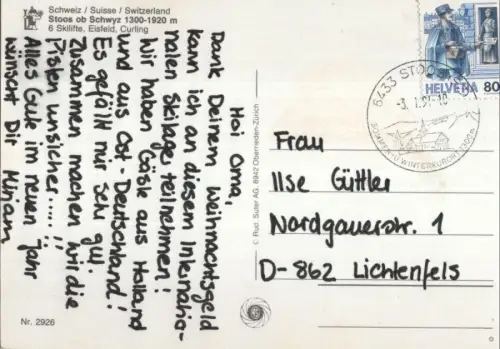 Schweiz / Suisse / Switzerland
Stoos ob Schwyz 1300-1920 m
6 Skilifte, Eisfeld, Curling
Hoi Oma,
Dank Deinem Weihnachtsgeld
kann ich an diesem Internatio-
nalen Skilager teilnehmen!
Wir haben Gäste aus Holland
und aus Ost-Deutschland!
Es gefällt mir sehr gut.
Zusammen machen wir die
Pisten unsicher.....!!
Alles Gute im neuen Jahr
wünscht Dir Mirjam
Nr. 2926
© Rud. Suter AG, 8942 Oberrieden-Zürich
HELVETIA 80
6433 STOOS
Frau
Ilse Güttler
Nordgauerstr. 1
D-862 Lichtenfels